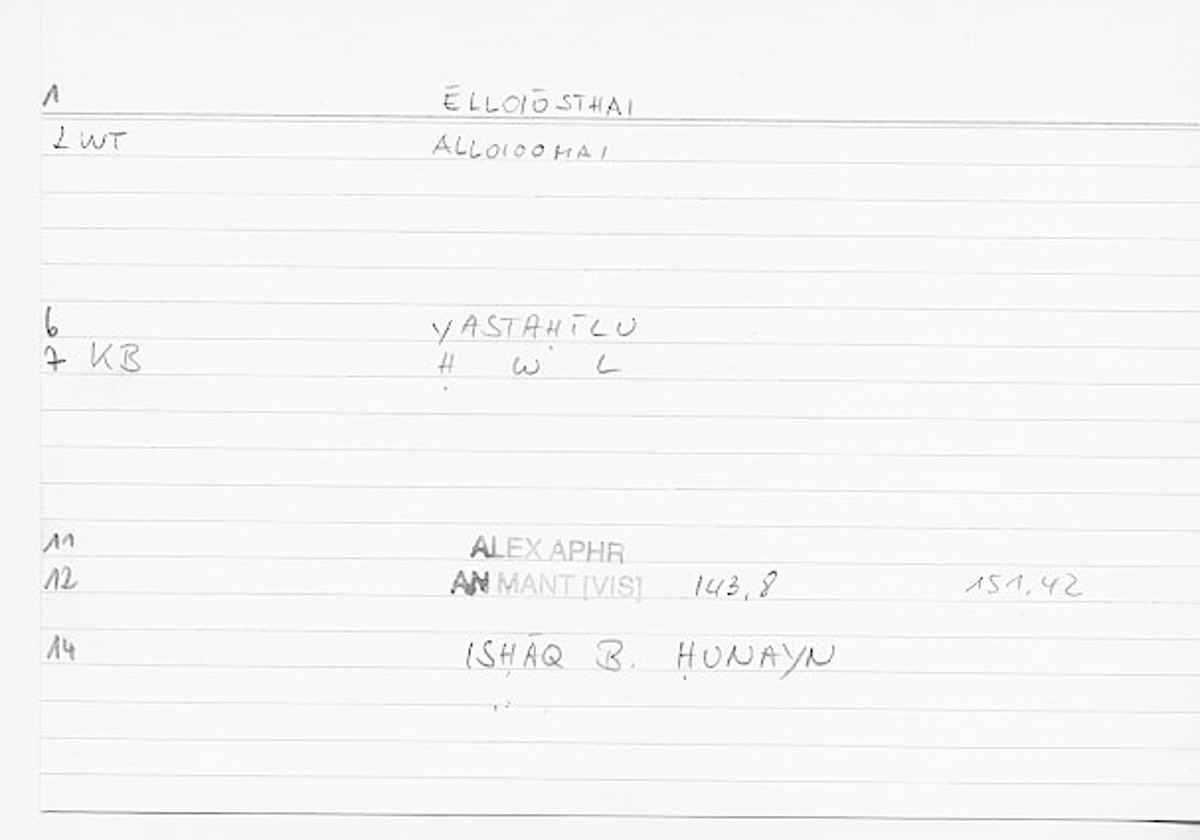 1 ĒLLOIŌSTHAI
2 WT ALLOIOOMAI
6 YASTAḤĪLU
7 KB Ḥ W L
11 ALEX APHR
12 AN MANT [VIS] 143,8 151,42
14 ISḤĀQ B. ḤUNAYN